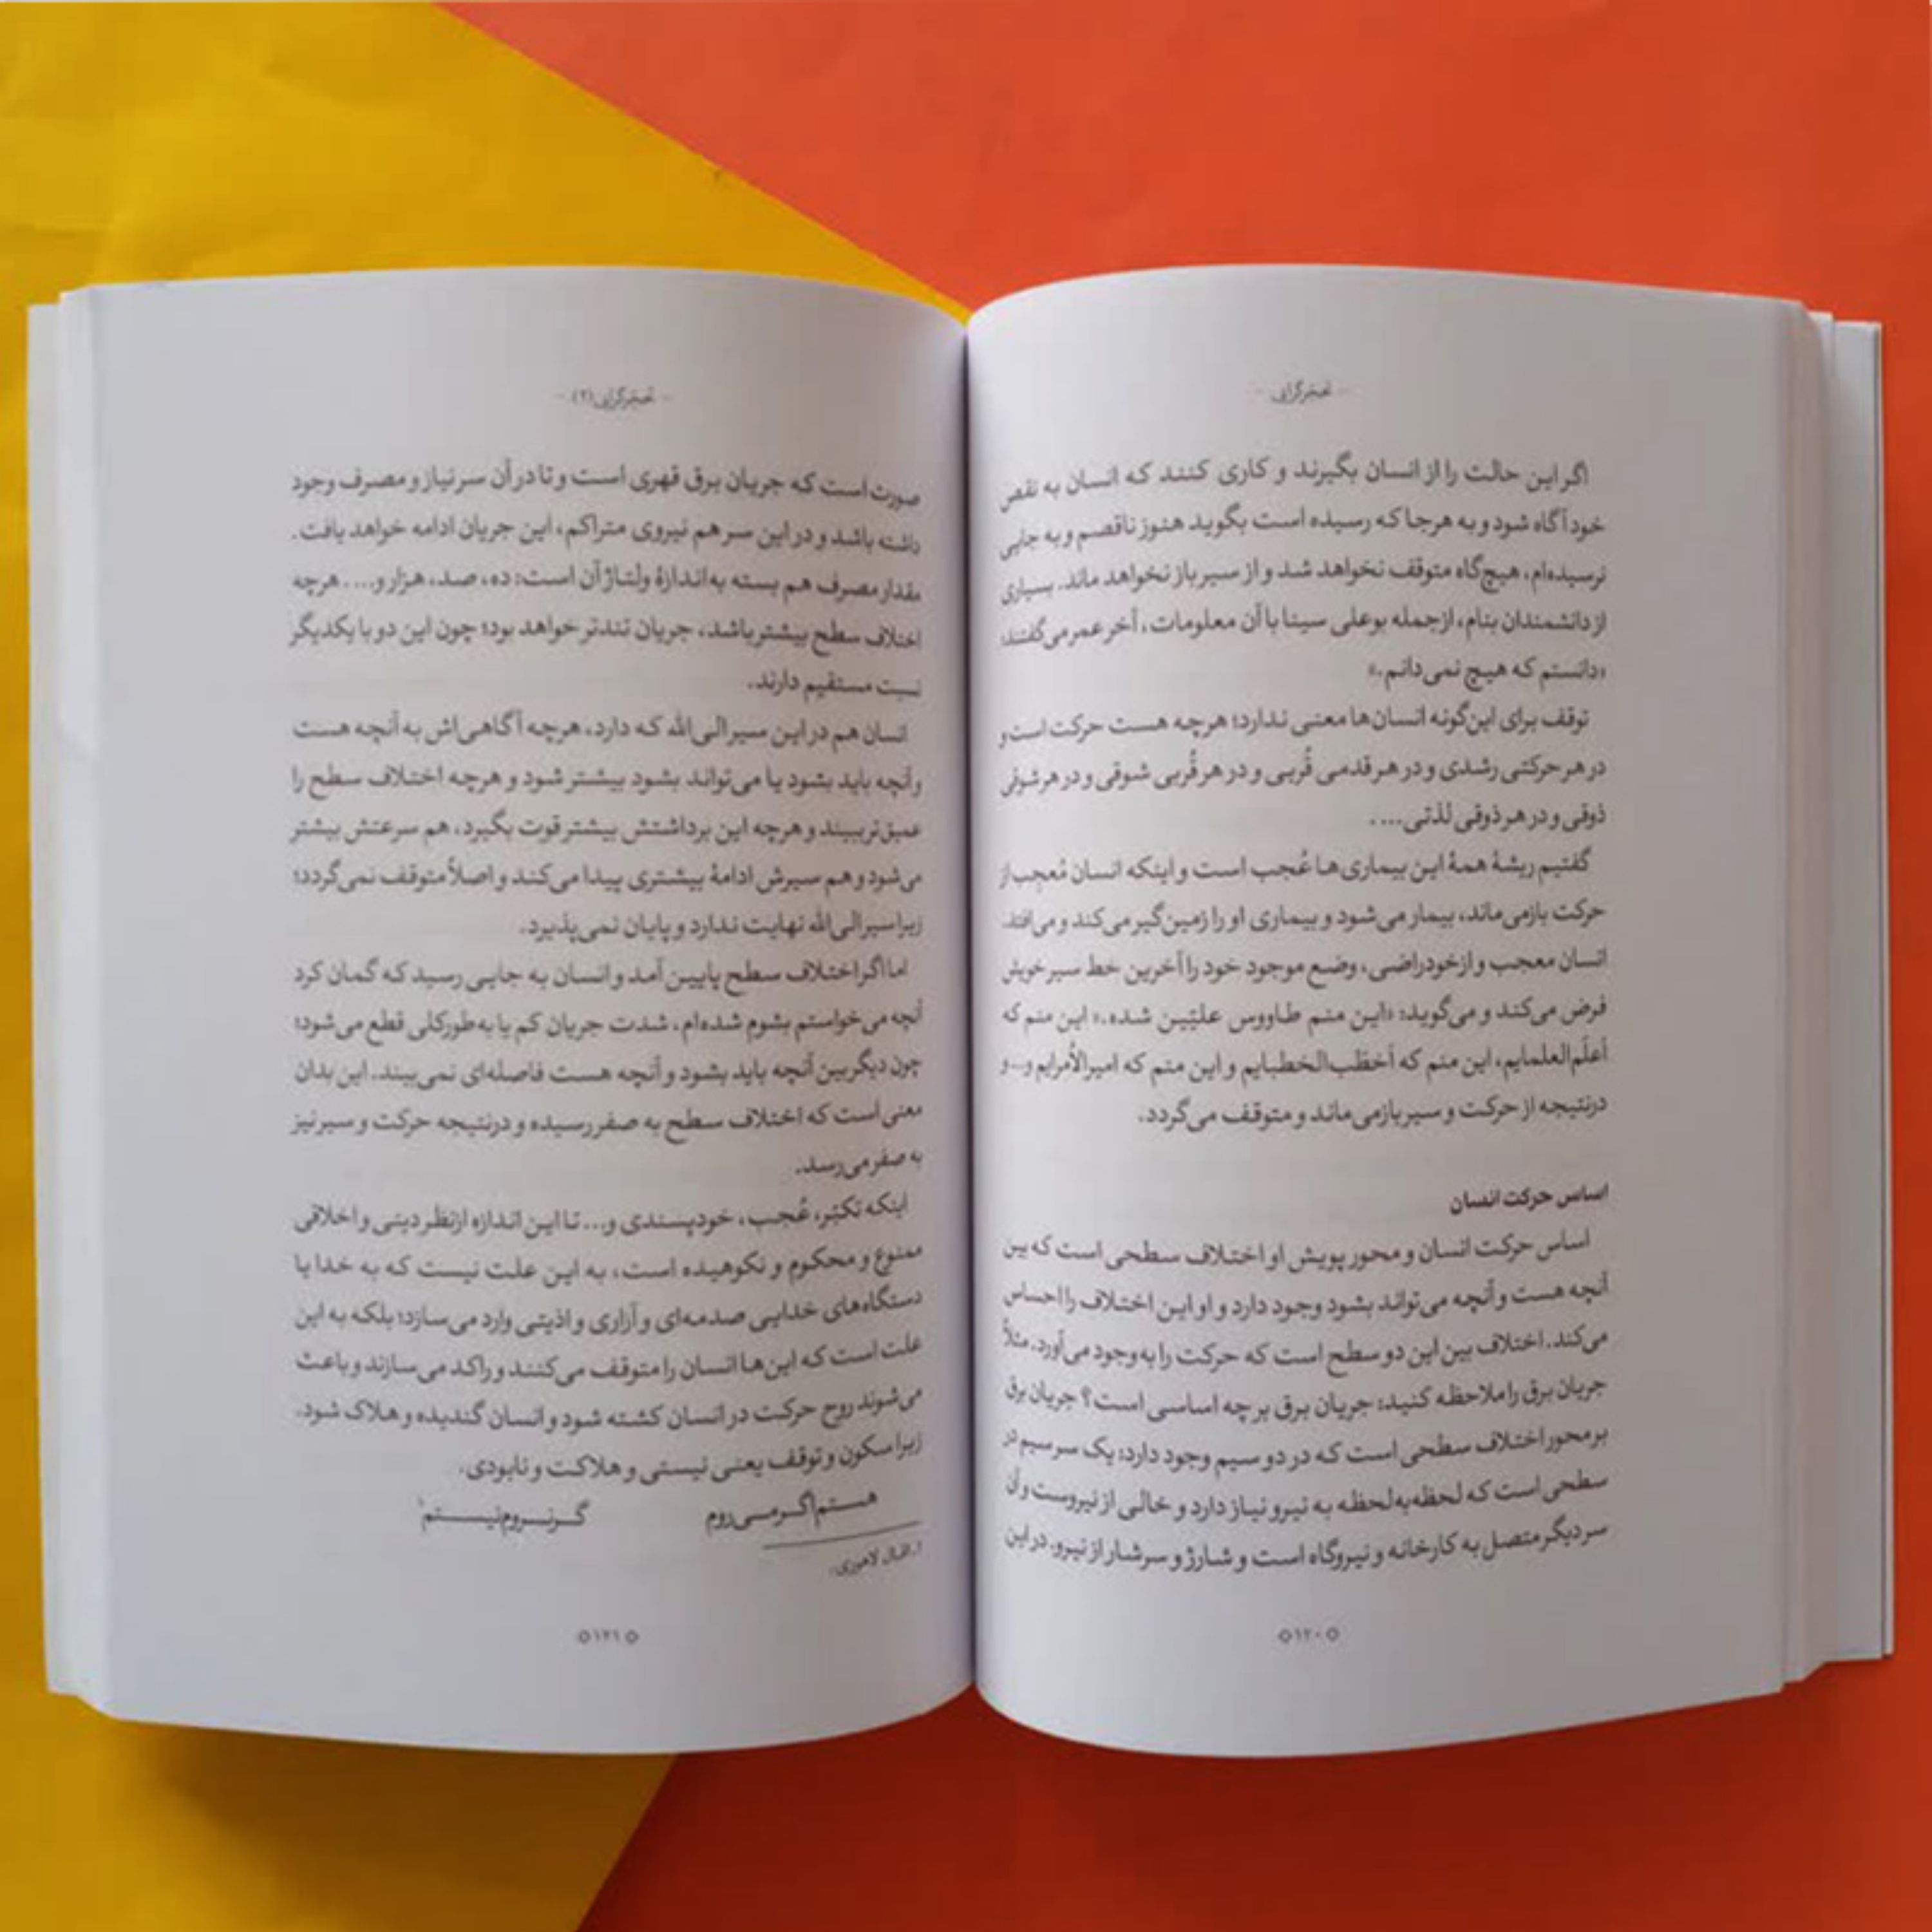 تحجّرگرایی
اگر این حالت را از انسان بگیرند و کاری کنند که انسان به نقص
خود آگاه شود و به هرجا که رسیده است بگوید هنوز ناقصم و به جایی
نرسیده‌ام، هیچ‌گاه متوقف نخواهد شد و از سیر باز نخواهد ماند. بسیاری
از دانشمندان بنام، ازجمله بوعلی سینا با آن معلومات، آخر عمر می‌گفتند:
«دانستم که هیچ نمی‌دانم.»
توقف برای این‌گونه انسان‌ها معنی ندارد؛ هرچه هست حرکت است و
در هر حرکتی رشدی و در هر قدمی قُربی و در هر قُربی شوقی و در هر شوقی
ذوقی و در هر ذوقی لذتی... .
گفتیم ریشهٔ همهٔ این بیماری‌ها عُجب است و اینکه انسان مُعجِب از
حرکت بازمی‌ماند، بیمار می‌شود و بیماری او را زمین‌گیر می‌کند و می‌افتد.
انسان معجب و ازخودراضی، وضع موجود خود را آخرین خط سیر خویش
فرض می‌کند و می‌گوید: «این منم طاووس علیّین شده.» این منم که
أعلَم‌العلمایم، این منم که أخطَب‌الخطبایم و این منم که امیرالأمرایم و... و
درنتیجه از حرکت و سیر بازمی‌ماند و متوقف می‌گردد.
اساس حرکت انسان
اساس حرکت انسان و محور پویش او اختلاف سطحی است که بین
آنچه هست و آنچه می‌تواند بشود وجود دارد و او این اختلاف را احساس
می‌کند. اختلاف بین این دو سطح است که حرکت را به‌وجود می‌آورد. مثلاً
جریان برق را ملاحظه کنید: جریان برق بر چه اساسی است؟ جریان برق
بر محور اختلاف سطحی است که در دو سیم وجود دارد: یک سر سیم در
سطحی است که لحظه‌به‌لحظه به نیرو نیاز دارد و خالی از نیروست و آن
سر دیگر متصل به کارخانه و نیروگاه است و شارژ و سرشار از نیرو. در این
۱۲۰
تحجّرگرایی (۲)
صورت است که جریان برق قهری است و تا در آن سر نیاز و مصرف وجود
داشته باشد و در این سر هم نیروی متراکم، این جریان ادامه خواهد یافت.
مقدار مصرف هم بسته به‌اندازهٔ ولتاژ آن است: ده، صد، هزار و... . هرچه
اختلاف سطح بیشتر باشد، جریان تندتر خواهد بود؛ چون این دو با یکدیگر
نسبت مستقیم دارند.
انسان هم در این سیر الی‌الله که دارد، هرچه آگاهی‌اش به آنچه هست
و آنچه باید بشود یا می‌تواند بشود بیشتر شود و هرچه اختلاف سطح را
عمیق‌تر ببیند و هرچه این برداشتش بیشتر قوت بگیرد، هم سرعتش بیشتر
می‌شود و هم سیرش ادامهٔ بیشتری پیدا می‌کند و اصلاً متوقف نمی‌گردد؛
زیرا سیر الی‌الله نهایت ندارد و پایان نمی‌پذیرد.
اما اگر اختلاف سطح پایین آمد و انسان به جایی رسید که گمان کرد
آنچه می‌خواستم بشوم شده‌ام، شدت جریان کم یا به‌طورکلی قطع می‌شود؛
چون دیگر بین آنچه باید بشود و آنچه هست فاصله‌ای نمی‌بیند. این بدان
معنی است که اختلاف سطح به صفر رسیده و درنتیجه حرکت و سیر نیز
به صفر می‌رسد.
اینکه تکبّر، عُجب، خودپسندی و... تا این اندازه ازنظر دینی و اخلاقی
ممنوع و محکوم و نکوهیده است، به این علت نیست که به خدا یا
دستگاه‌های خدایی صدمه‌ای و آزاری و اذیتی وارد می‌سازد؛ بلکه به این
علت است که این‌ها انسان را متوقف می‌کنند و راکد می‌سازند و باعث
می‌شوند روح حرکت در انسان کشته شود و انسان گندیده و هلاک شود.
زیرا سکون و توقف یعنی نیستی و هلاکت و نابودی.
هستم اگر می‌روم گر نروم نیستم۱
۱. اقبال لاهوری.
۱۲۱